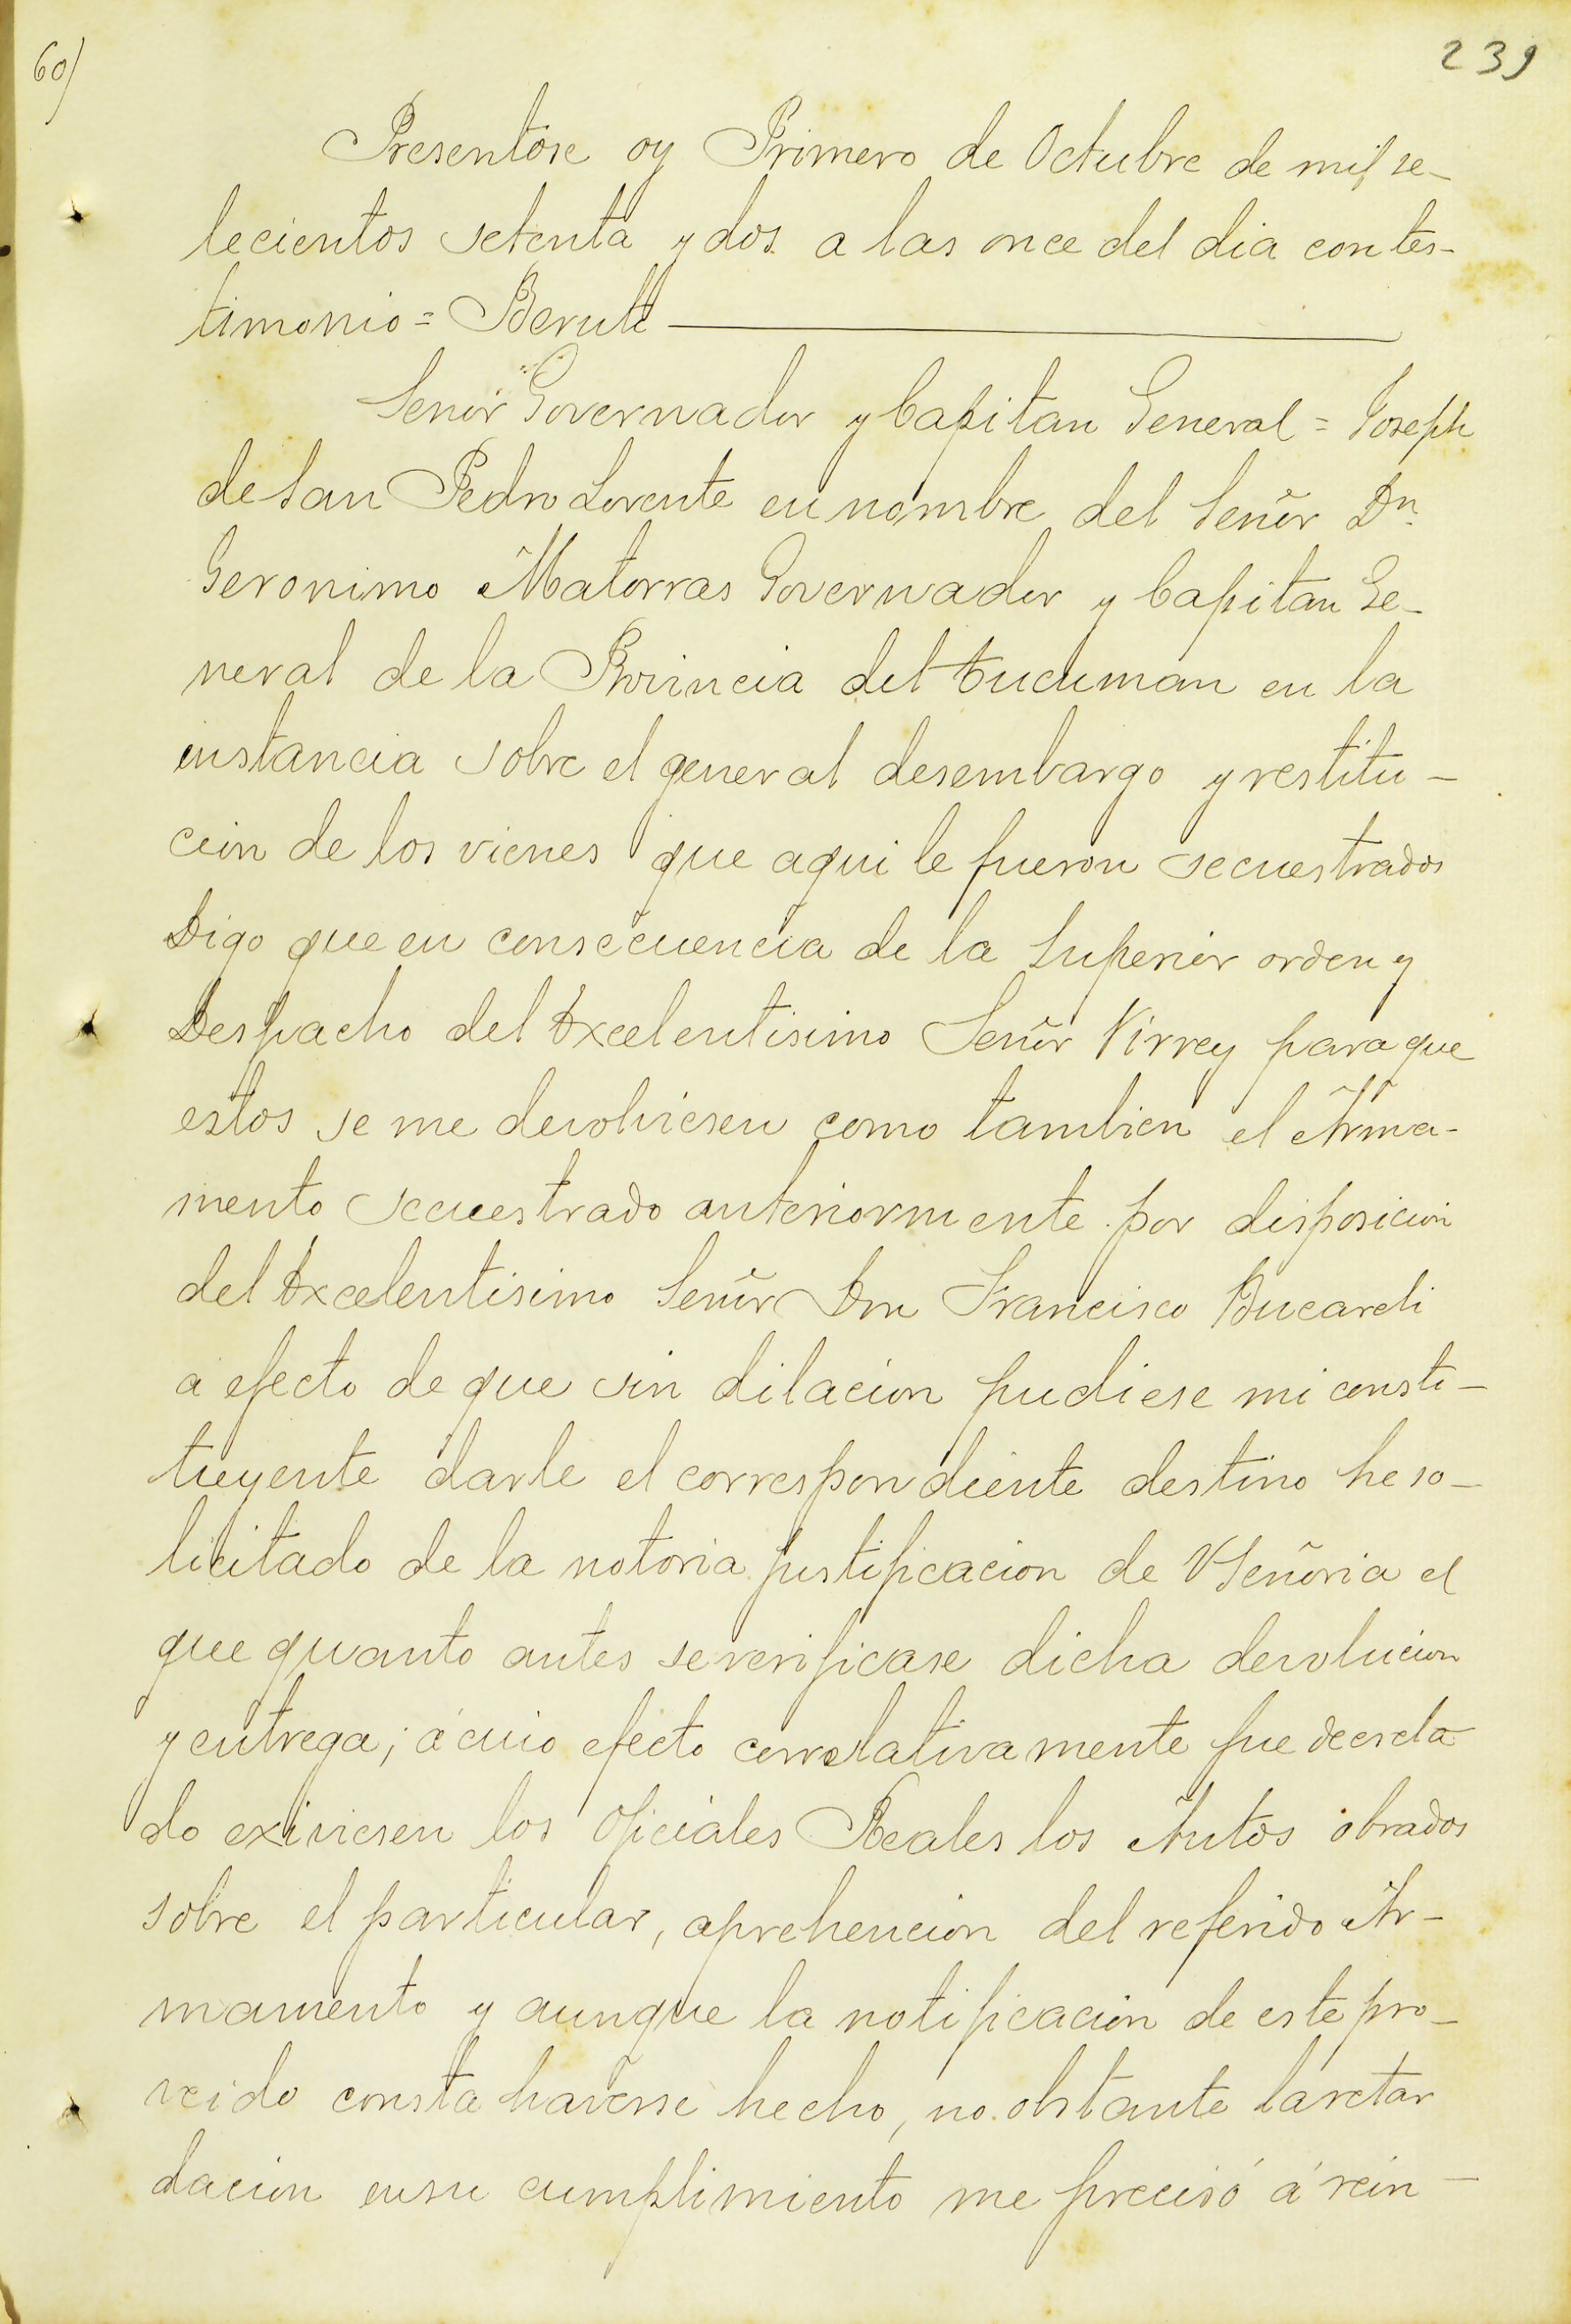 60/
239
Presentóse oy Primero de Octubre de mil se-
tecientos setenta y dos a las once del dia con tes-
timonio = Beruti
Señor Governador y Capitan General = Joseph
de San Pedro Lorente en nombre del Señor Dn.
Geronimo Matorras Governador y Capitan Ge-
neral de la Provincia del tucuman en la
instancia sobre el general desembargo y restitu-
cion de los vienes que aqui le fueron secuestrados
Digo que en consecuencia de la Superior orden y
Despacho del Excelentisimo Señor Virrey para que
estos se me devolviesen como tambien el Arma-
mento secuestrado anteriormente por disposicion
del Excelentisimo Señor Don Francisco Bucareli
a efecto de que sin dilacion pudiese mi consti-
tuyente darle el correspondiente destino he so-
licitado de la notoria justificacion de VSeñoria el
que quanto antes se verificase dicha devolucion
y entrega; á cuio efecto correlativamente fue decreta
do exiviesen los Oficiales Reales los Autos obrados
sobre el particular, aprehencion del referido Ar-
mamento y aunque la notificacion de este pro-
veido consta haverse hecho, no obstante la retar
dacion en su cumplimiento me precisó á rein-